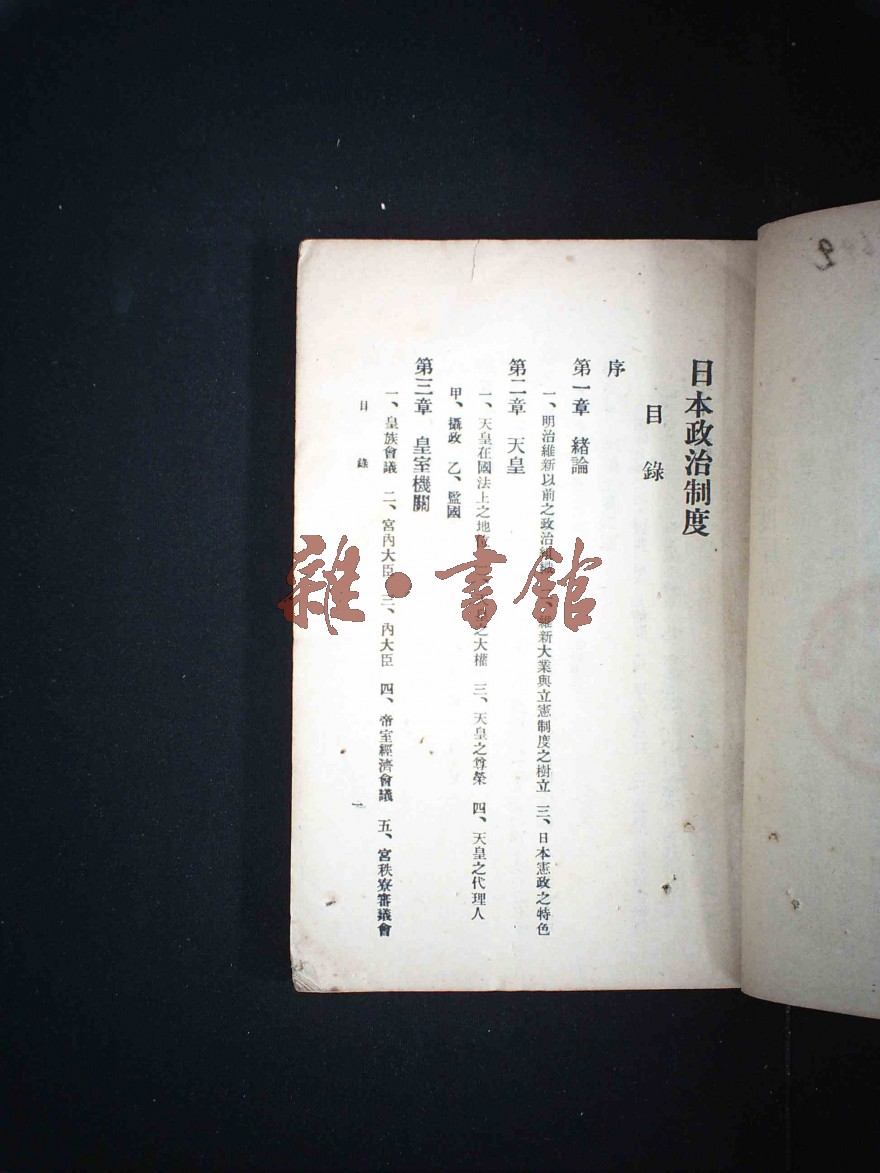 日本政治制度
目錄
序
第一章 緒論
一、明治維新以前之政治組織 維新大業與立憲制度之樹立 三、日本憲政之特色
第二章 天皇
一、天皇在國法上之地位 之大權 三、天皇之尊榮 四、天皇之代理人
甲、攝政 乙、監國
第三章 皇室機關
一、皇族會議 二、宮內大臣 三、內大臣 四、帝室經濟會議 五、宮秩寮審議會
目錄
一
雜·書館